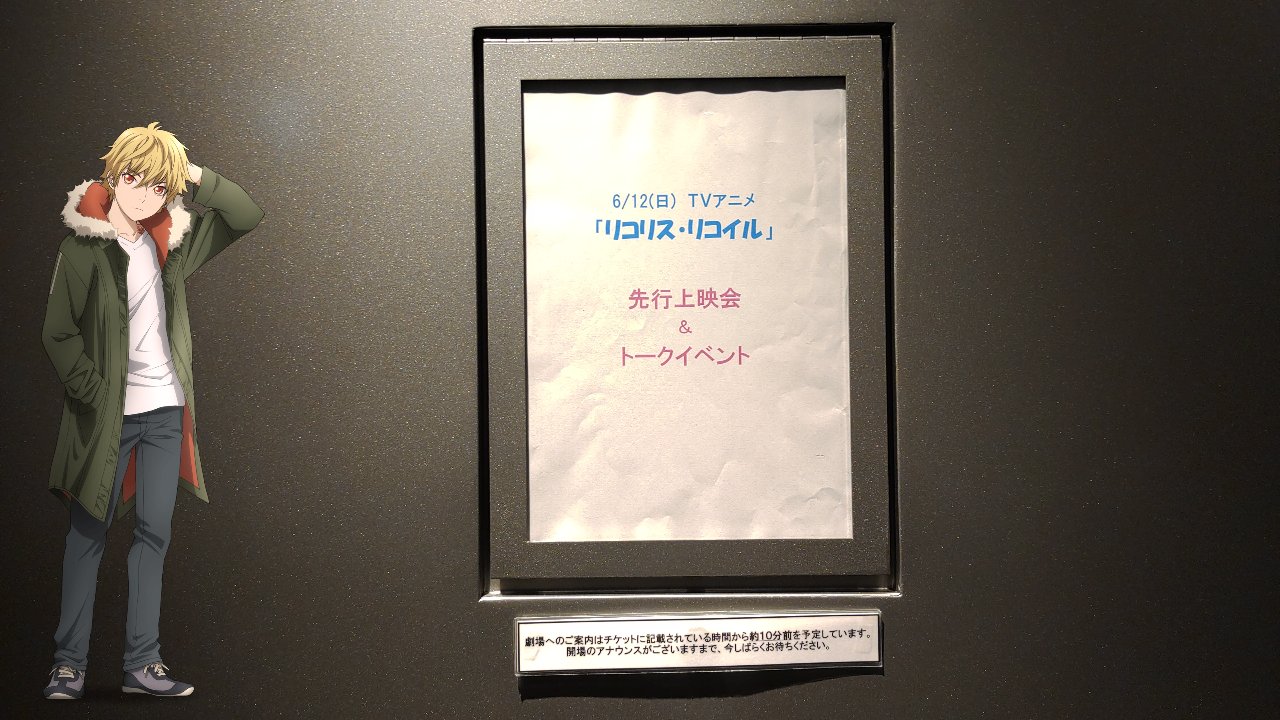 6/12(日) TVアニメ
「リコリス・リコイル」
先行上映会
&
トークイベント
劇場へのご案内はチケットに記載されている時間から約10分前を予定しています。
開場のアナウンスがございますまで、今しばらくお待ちください。